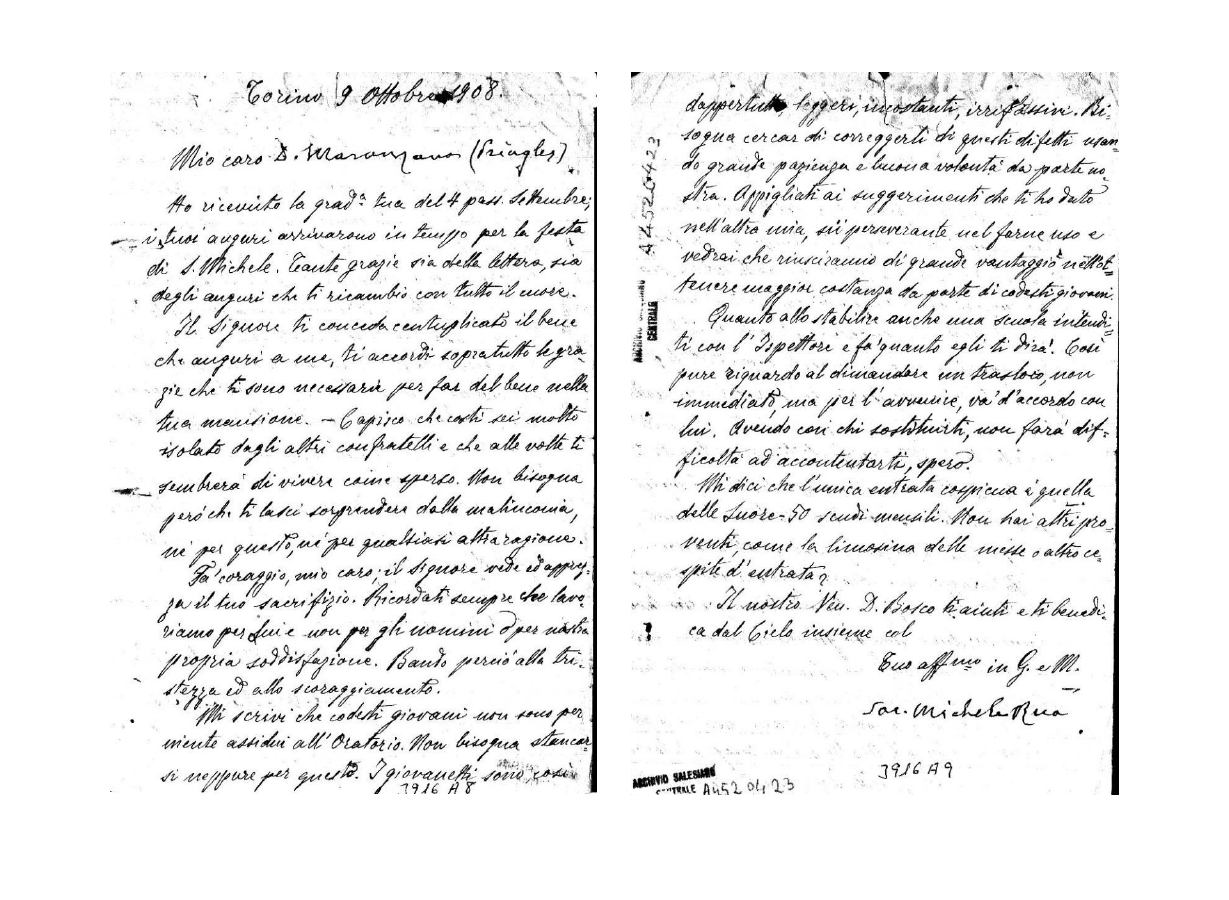 Torino 9 Ottobre 1908.
Mio caro D. Maranzana (Pringles)
Ho ricevuto la gradª tua del 4 pass. Settembre;
i tuoi auguri arrivarono in tempo per la festa
di S. Michele. Tante grazie sia della lettera, sia
degli auguri che ti ricambio con tutto il cuore.
Il Signore ti conceda centuplicato il bene
che auguri a me, ti accordi sopratutto le gra-
zie che ti sono necessarie per far del bene nella
tua mansione. – Capisco che costì sei molto
isolato dagli altri confratelli e che alle volte ti
sembrerà di vivere come sperso. Non bisogna
però che ti lasci sorprendere dalla malinconia,
nè per questo, nè per qualsiasi altra ragione.
Fa' coraggio, mio caro; il Signore vede ed apprez-
za il tuo sacrifizio. Ricordati sempre che lavo-
riamo per Lui e non per gli uomini o per nostra
propria soddisfazione. Bando perciò alla tri-
stezza ed allo scoraggiamento.
Mi scrivi che codesti giovani non sono per
niente assidui all'Oratorio. Non bisogna stancar-
si neppure per questo. I giovanetti sono così
3916 A8
dappertutto, leggeri, incostanti, irriflessivi. Bi-
sogna cercar di correggerli di questi difetti usan-
do grande pazienza e buona volontà da parte no-
stra. Appigliati ai suggerimenti che ti ho dato
nell'altra mia, sii perseverante nel farne uso e
vedrai che riusciranno di grande vantaggio nell'ot-
tenere maggior costanza da parte di codesti giovani.
Quanto allo stabilire anche una scuola intendi-
ti con l'Ispettore e fa' quanto egli ti dirà. Così
pure riguardo al dimandare un trasloco, non
immediato, ma per l'avvenire, va' d'accordo con
lui. Avendo con chi sostituirti, non farà dif-
ficoltà ad accontentarti, spero.
Mi dici che l'unica entrata cospicua è quella
delle Suore - 50 scudi mensili. Non hai altri pro-
venti, come la limosina delle messe o altro ce-
spite d'entrata?
Il nostro Ven. D. Bosco ti aiuti e ti benedi-
ca dal Cielo insieme col
Tuo affmo in G. e M.
Sac. Michele Rua
3916 A9
ARCHIVIO SALESIANO
CENTRALE A452 04 23
A4520423
ARCHIVIO SALESIANO
CENTRALE